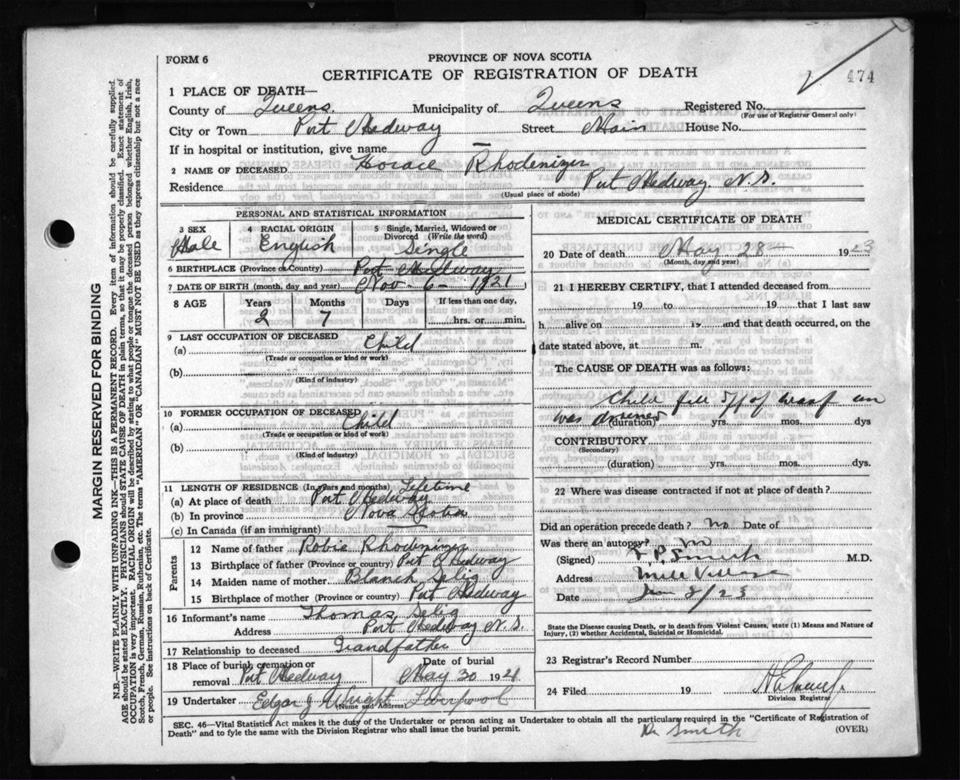 FORM 6
PROVINCE OF NOVA SCOTIA
CERTIFICATE OF REGISTRATION OF DEATH
474
1 PLACE OF DEATH—
County of Queens. Municipality of Queens Registered No.
(For use of Registrar General only)
City or Town Port Medway Street Main House No.
If in hospital or institution, give name —
2 NAME OF DECEASED Horace Rhodenizer
Residence Port Medway, N.S.
(Usual place of abode)
PERSONAL AND STATISTICAL INFORMATION
3 SEX Male
4 RACIAL ORIGIN English
5 Single, Married, Widowed or Divorced (Write the word) Single
6 BIRTHPLACE (Province or Country) Port Medway
7 DATE OF BIRTH (month, day and year) Nov - 6 - 1921
8 AGE Years Months Days If less than one day,
2 7 hrs. or min.
9 LAST OCCUPATION OF DECEASED
(a) Child
(Trade or occupation or kind of work)
(b)
(Kind of industry)
10 FORMER OCCUPATION OF DECEASED
(a) Child
(Trade or occupation or kind of work)
(b)
(Kind of industry)
11 LENGTH OF RESIDENCE (In years and months) Lifetime
(a) At place of death Port Medway
(b) In province Nova Scotia
(c) In Canada (if an immigrant)
Parents
12 Name of father Robie Rhodenizer
13 Birthplace of father (Province or country) Port Medway
14 Maiden name of mother Blanch Selig
15 Birthplace of mother (Province or country) Port Medway
16 Informant's name Thomas Selig
Address Port Medway N.S.
17 Relationship to deceased Grandfather
18 Place of burial, cremation or removal Port Medway Date of burial May 30 192
19 Undertaker Edgar J Wright Liverpool
(Name and Address)
MEDICAL CERTIFICATE OF DEATH
20 Date of death May 28 1923
(Month, day and year)
21 I HEREBY CERTIFY, that I attended deceased from
19 to 19 that I last saw
h alive on 19 and that death occurred, on
date stated above, at m.
The CAUSE OF DEATH was as follows:
Child fell off of
was drowned
(duration) yrs. mos. dys
CONTRIBUTORY
(Secondary)
(duration) yrs. mos. dys.
22 Where was disease contracted if not at place of death?
Did an operation precede death? no Date of
Was there an autopsy? no
(Signed) Smith M.D.
Address Mill Village
Date 23
State the Disease causing Death, or in death from Violent Causes, state (1) Means and Nature of
Injury, (2) whether Accidental, Suicidal or Homicidal.
23 Registrar's Record Number
24 Filed 19
Division Registrar
SEC. 46—Vital Statistics Act makes it the duty of the Undertaker or person acting as Undertaker to obtain all the particulars required in the "Certificate of Registration of
Death" and to fyle the same with the Division Registrar who shall issue the burial permit.
(OVER)
Dr Smith
MARGIN RESERVED FOR BINDING
N.B. WRITE PLAINLY WITH UNFADING INK—THIS IS A PERMANENT RECORD. Every item of information should be carefully supplied.
AGE should be stated EXACTLY. PHYSICIANS should STATE CAUSE OF DEATH in plain terms, so that it may be properly classified. Exact statement of
OCCUPATION is very important. RACIAL ORIGIN will be described by stating to what people or tongue the deceased person belonged whether English, Irish,
Scotch, French, German, Russian, Ruthenian, etc. The terms "AMERICAN" or "CANADIAN" MUST NOT BE USED as they express citizenship but not a race
or people. See instructions on back of Certificate.